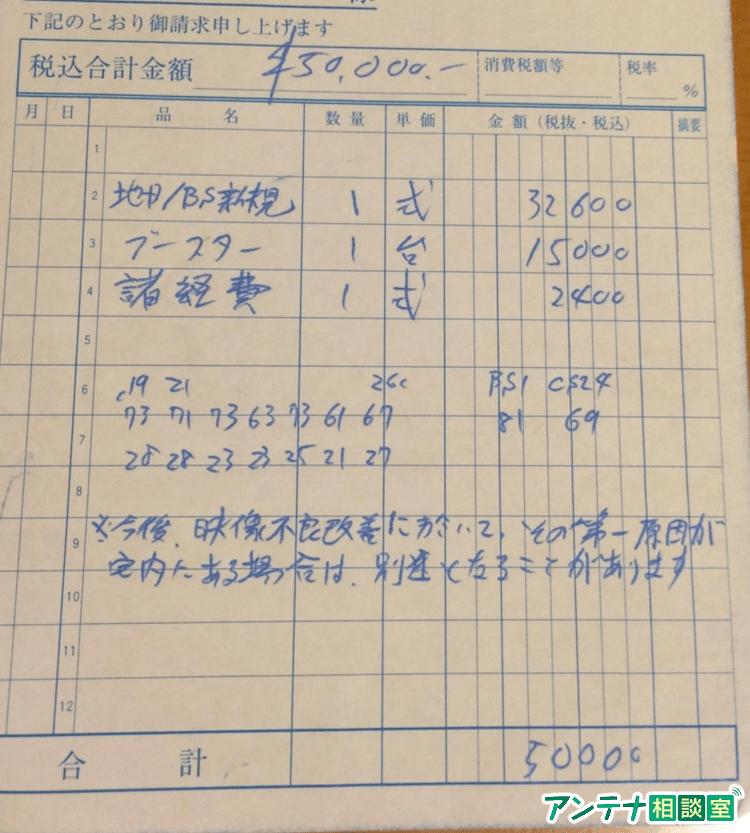 下記のとおり御請求申し上げます
税込合計金額 ¥50,000.- 消費税額等 税率 %
月 日 品 名 数量 単価 金額(税抜・税込) 摘要
1
2 地D/BS新規 1 式 32600
3 ブースター 1 台 15000
4 諸経費 1 式 2400
5
6 c19 21 26c BS1 CS24
73 71 73 63 73 61 67 81 69
7
28 28 23 23 25 21 27
8
※今後、映像不良改善において、その第一原因が
9
宅内にある場合は、別途となることがあります
10
11
12
合 計 50000
アンテナ相談室